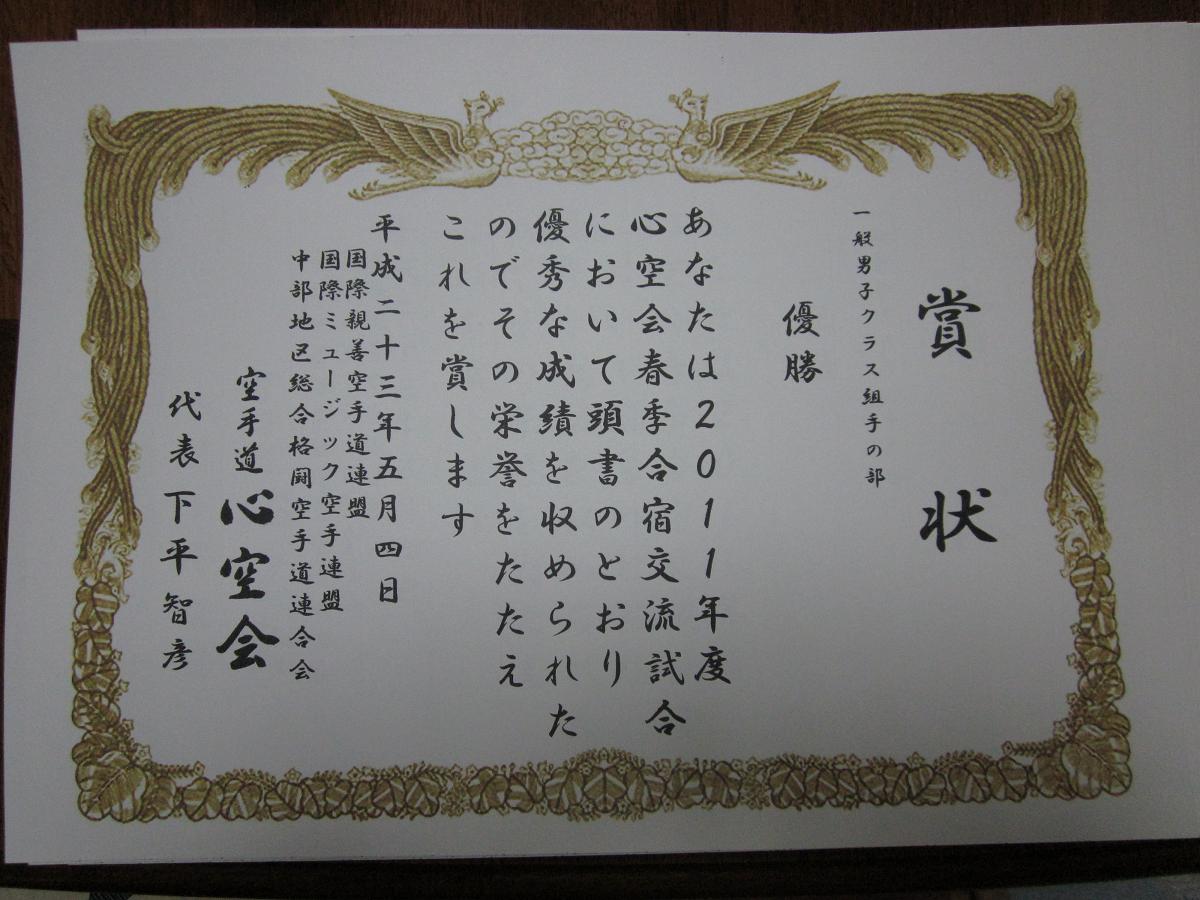 賞状
一般男子クラス組手の部
優勝
あなたは2011年度
心空会春季合宿交流試合
において頭書のとおり
優秀な成績を収められた
のでその栄誉をたたえ
これを賞します
平成二十三年五月四日
国際親善空手道連盟
国際ミュージック空手連盟
中部地区総合格闘空手道連合会
空手道心空会
代表下平智彦